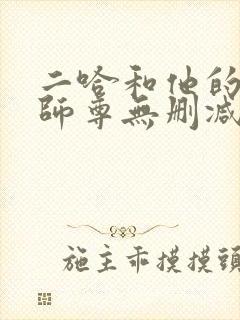 二哈和他的
師尊無删减
施主乖摸摸頭